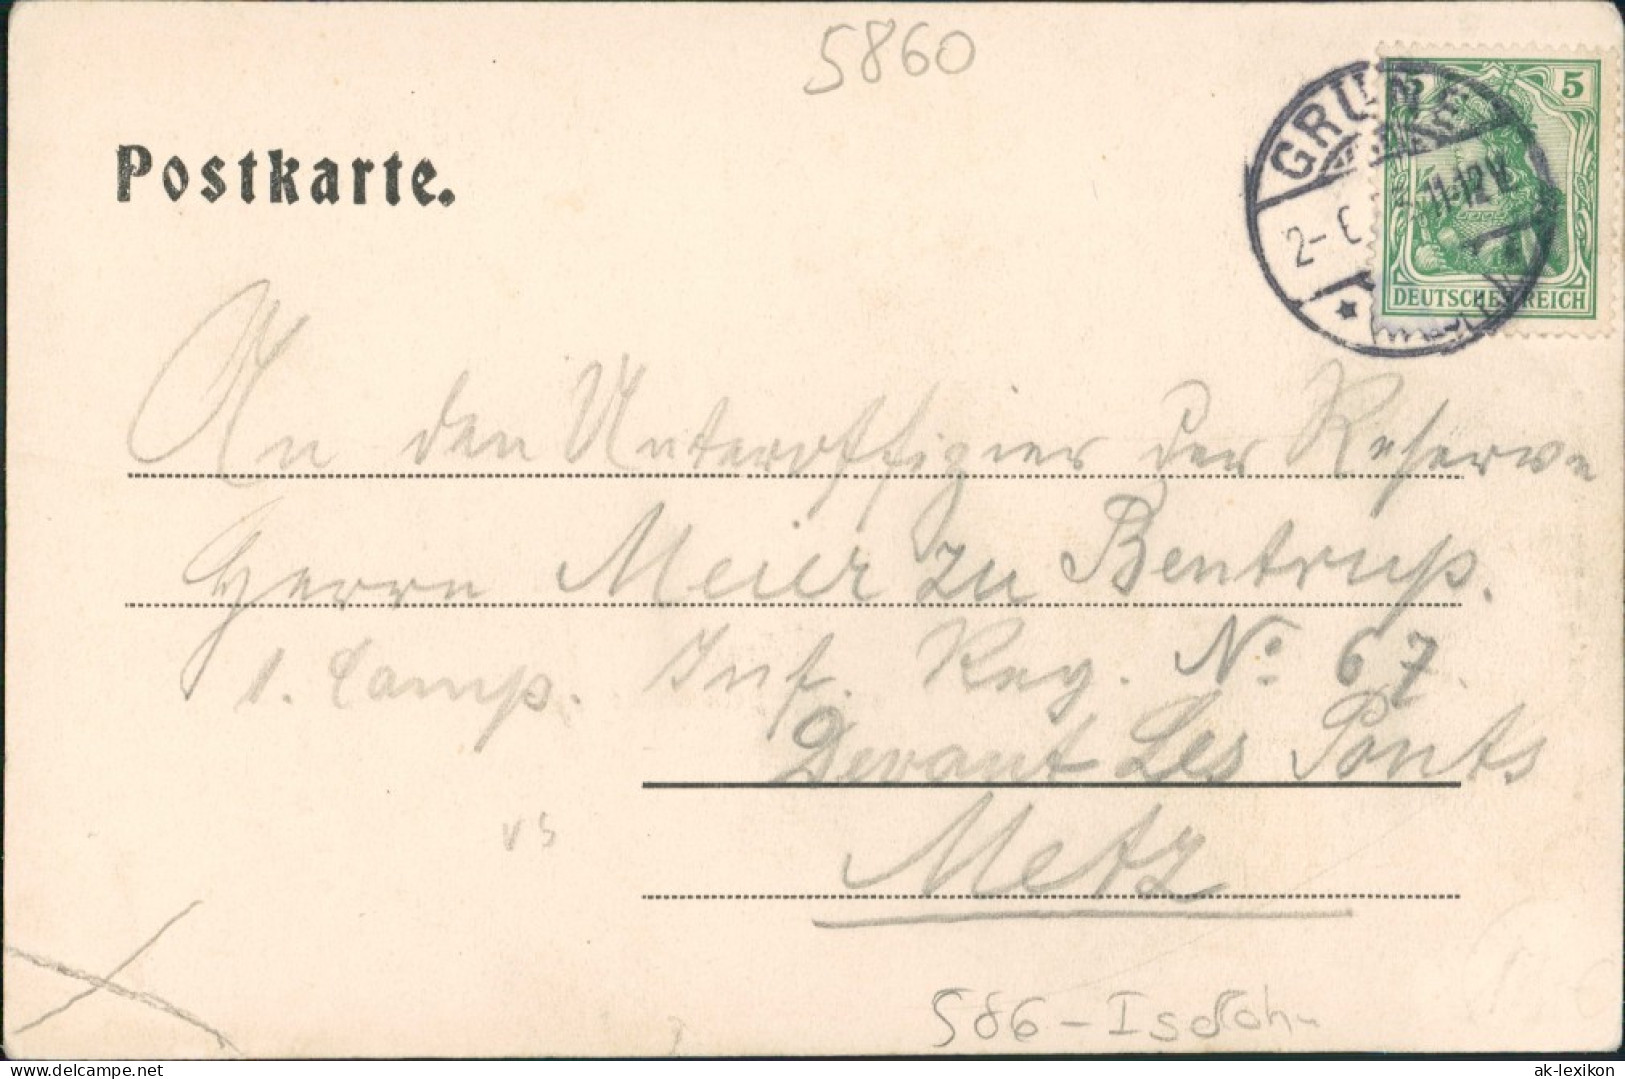 5860
Postkarte.
GRÜNE
2- 11-12V
5
DEUTSCHES REICH
An den Unteroffizier der Reserve
Herrn Meier zu Bentrup.
1. Comp. Inf. Reg. No 67.
Devant Les Ponts
Metz
586 - Iserloh-
www.delcampe.net
ak-lexikon